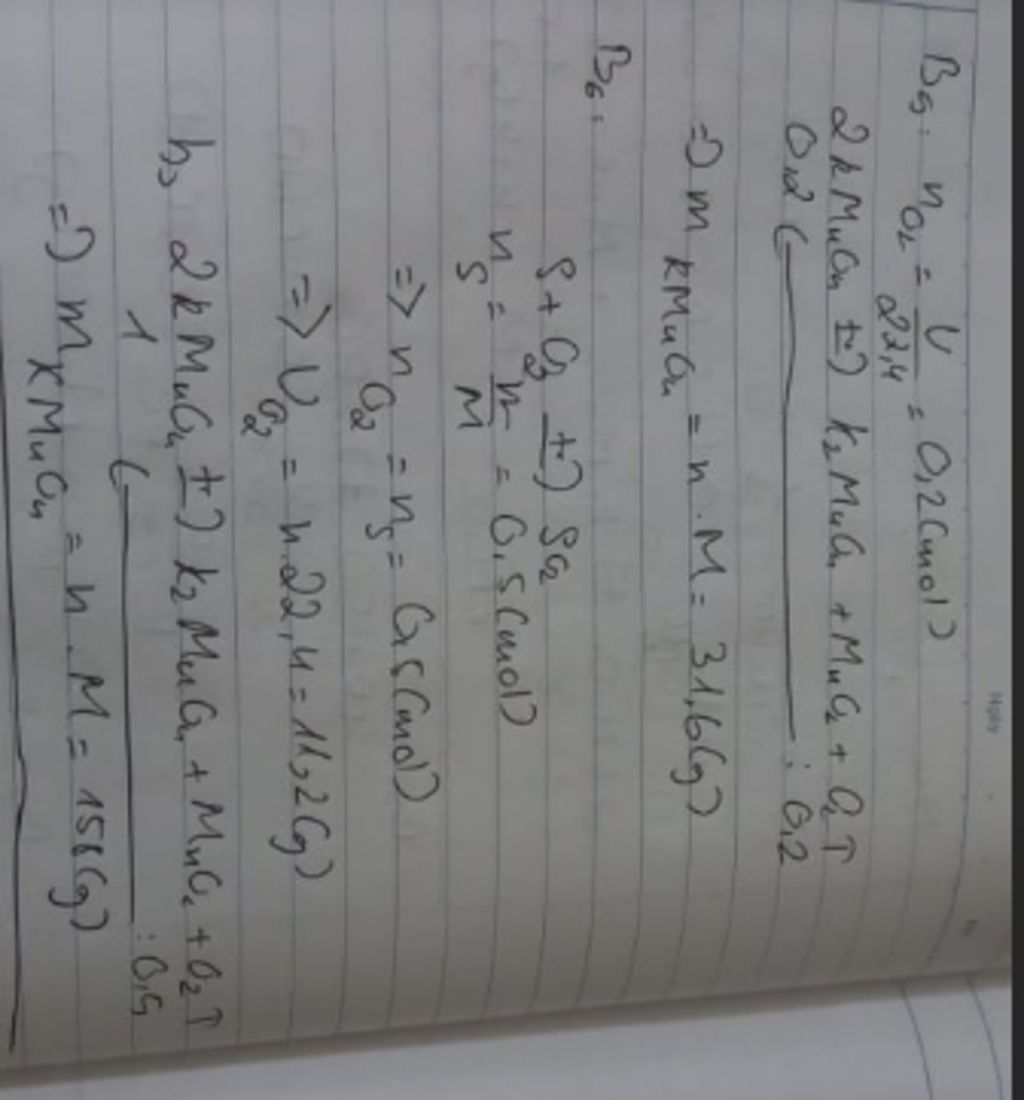 Ngày
B5. nO2 = V/22,4 = 0,2(mol)
2KMnO4 t→) K2MnO4 + MnO2 + O2↑
0,2 (——— : 0,2
=) m KMnO4 = n . M = 31,6(g)
B6.
S + O2 t→) SO2
nS = m/M = 0,5(mol)
=> nO2 = nS = 0,5(mol)
=> VO2 = n.22,4 = 11,2(g)
b, 2KMnO4 t→) K2MnO4 + MnO2 + O2↑
1 (——— : 0,5
=) mKMnO4 = n . M = 158(g)